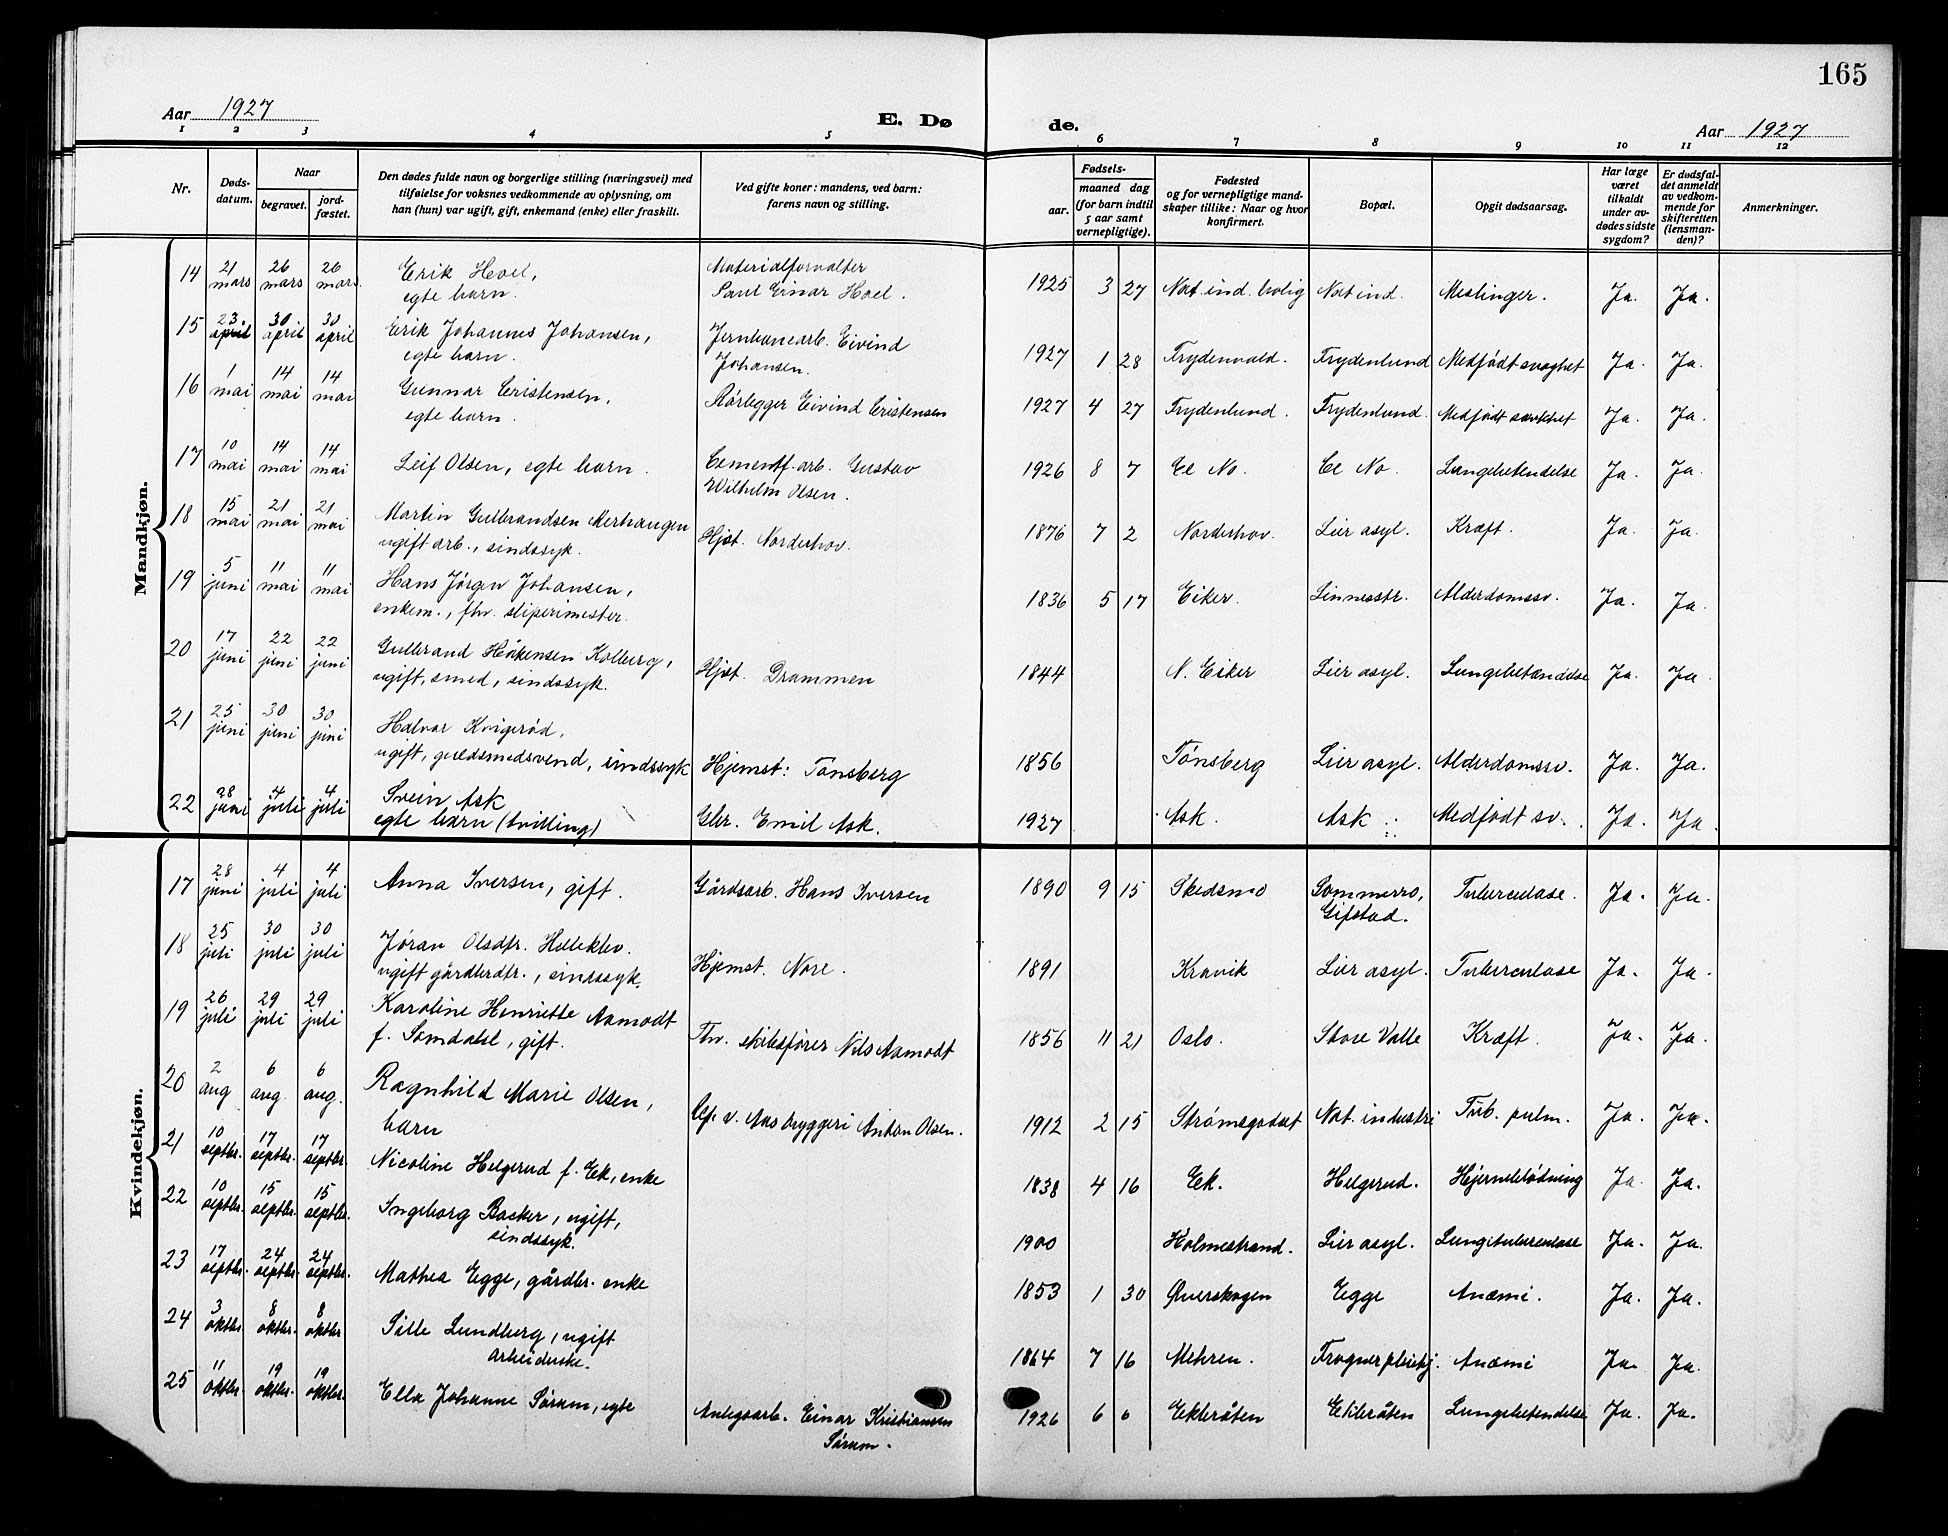 165
Aar 1927 E. Dø de. Aar 1927
1 2 3 4 5 6 7 8 9 10 11 12
Nr. Døds-datum. Naar begravet. jord-fæstet. Den dødes fulde navn og borgerlige stilling (næringsvei) med tilføielse for voksnes vedkommende av oplysning, om han (hun) var ugift, gift, enkemand (enke) eller fraskilt. Ved gifte koner: mandens, ved barn: farens navn og stilling. Fødsels- aar. maaned dag (for barn indtil 5 aar samt vernepligtige). Fødested og for vernepligtige mand-skaper tillike: Naar og hvor konfirmert. Bopæl. Opgit dødsaarsag. Har læge været tilkaldt under av-dødes sidste sygdom? Er dødsfal-det anmeldt av vedkom-mende for skifteretten (lensman-den)? Anmerkninger.
Mandkjøn.
14 21 mars 26 mars 26 mars Erik Hoel, egte barn. Materialforvalter Paul Einar Hoel. 1925 3 27 Nat. ind. bolig Nat ind. Meslinger. Ja. Ja.
15 23 april 30 april 30 april Erik Johannes Johansen, egte barn. Jernbanearb. Eivind Johansen. 1927 1 28 Frydenvold. Frydenlund Medfødt svaghet Ja. Ja.
16 1 mai 14 mai 14 mai Gunnar Cristensen, egte barn. Rørlegger Eivind Cristensen 1927 4 27 Frydenlund. Frydenlund. Medfødt Ja. Ja.
17 10 mai 14 mai 14 mai Leif Olsen, egte barn. Cementf. arb. Gustav Wilhelm Olsen. 1926 8 7 Ce No. Ce No. Lungebetendelse Ja. Ja.
18 15 mai 21 mai 21 mai Martin Gulbrandsen ugift arb., sindssyk. Hjst. Norderhov. 1876 7 2 Norderhov. Lier asyl. Kræft. Ja. Ja.
19 5 juni 11 mai 11 mai Hans Jørgen Johansen, enkem., fhv. sliperimester. 1836 5 17 Eiker. Linnesstr. Alderdomssv. Ja. Ja.
20 17 juni 22 juni 22 juni Gulbrand Håkensen Kolberg, ugift, smed, sindssyk. Hjst. Drammen 1844 N. Eiker Lier asyl. Lungebetændelse Ja. Ja.
21 25 juni 30 juni 30 juni Halvor Kvigerød, ugift, guldsmedsvend, sindssyk Hjemst: Tønsberg 1856 Tønsberg Lier asyl. Alderdomssv. Ja. Ja.
22 28 juni 4 juli 4 juli Svein Ask egte barn (tvilling) Gbr. Emil Ask. 1927 Ask. Ask Medfødt sv. Ja. Ja.
Kvindekjøn.
17 28 juni 4 juli 4 juli Anna Iversen, gift. Gårdsarb. Hans Iversen 1890 9 15 Skedsmo Sommerro, Gifstad. Tuberculose. Ja. Ja.
18 25 juli 30 juli 30 juli Jøran Olsdtr. ugift gårdbrdtr., sindssyk. Hjemst. Nore. 1891 Kravik Lier asyl. Tuberculose Ja. Ja.
19 26 juli 29 juli 29 juli Karoline Henriette Aamodt f. Somdalsl, gift. Fhv. skibsfører Nils Aamodt 1856 11 21 Oslo. Store Valle Kræft. Ja. Ja.
20 2 aug 6 aug. 6 aug. Ragnhild Marie Olsen, barn v. Aas bryggeri Anton Olsen. 1912 2 15 Strømsgodset Nat. industri Tub. pulm. Ja. Ja.
21 10 septbr. 17 septbr. 17 septbr. Nicoline Helgerud f. Ek, enke 1838 4 16 Ek. Helgerud. Hjerneblødning Ja. Ja.
22 10 septbr. 15 septbr. 15 septbr. Ingeborg Backer, ugift, sindssyk. 1900 Holmestrand. Lier asyl. Lungetuberculose Ja. Ja.
23 17 septbr. 24 septbr. 24 septbr. Mathea Egge, gårdbr. enke 1853 1 30 Øverskogen Egge Anæmi. Ja. Ja.
24 3 oktbr. 8 oktbr. 8 oktbr Sille Lundberg, ugift arbeiderske. 1864 7 16 Mehren. Frogner pleiehj. Anæmi Ja. Ja.
25 11 oktbr. 19 oktbr. 19 oktbr. Ella Johanne Sørum, egte Anlegsarb. Einar Kristiansen Sørum. 1926 6 6 Ekleråten Ekleråten Lungebetendelse Ja. Ja.